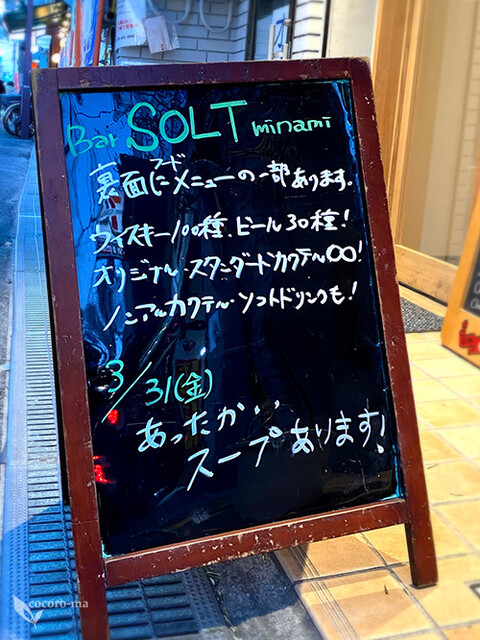 Bar SOLT minami
裏面にフードメニューの一部あります。
ウィスキー100種、ビール30種!
オリジナル・スタンダードカクテル∞!
ノンアルカクテル・ソフトドリンクも!
3/31(金)
あったかい
スープあります!
cocoro-ma